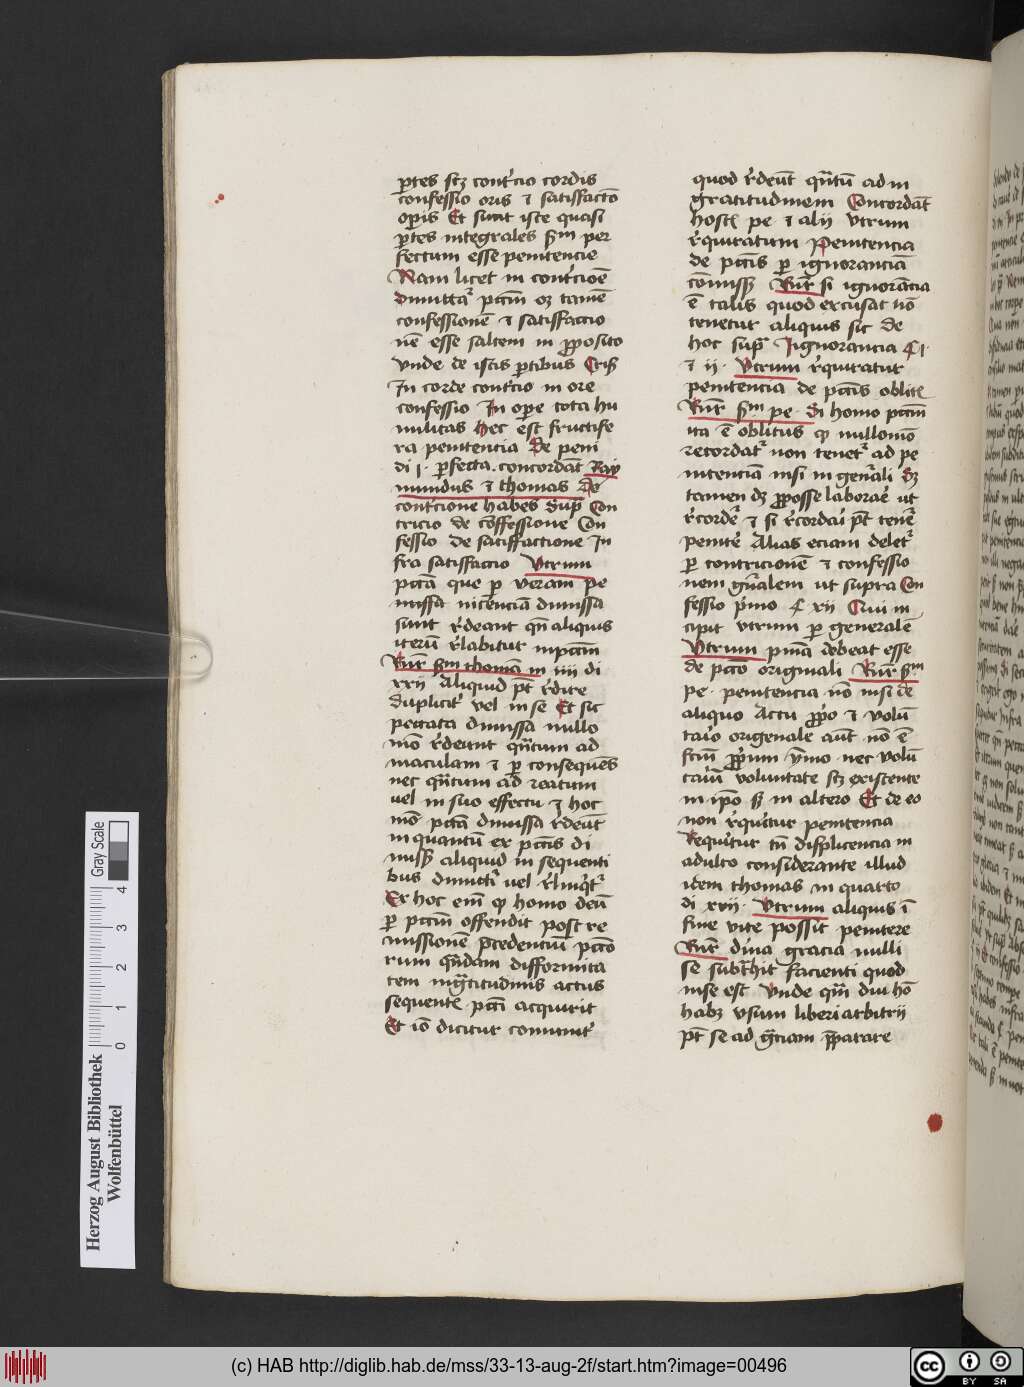 ptes scz contricio cordis
confessio oris ⁊ satisfactō
opis Et sunt iste quasi
ptes integrales scdm per
fectum esse penitencie
Nam licet in contricioē
dimittat pctm oz tamē
confessionē ⁊ satisfaccio
nē esse saltem in pposito
vnde de istis ptibus Cris
In corde contricio in ore
confessio In ope tota hu
militas hec est fructife
ra penitencia De peni
di j· pfecta . concordāt Ray
mundus ⁊ thomas De
contricione habes supra Con
tricio de cōffessione Con
fessio de satiffactione In
fra satiffaccio Vtrum
pctā que p veram pe
nissa nitenciā dimissa
sunt rdeant qn aliquis
iterū rlabitur in pctm
Rnr scdm thomā in iiij di
xxij Aliquid pt rdire
dupliciter vel in se Et sic
peccata dimissa nullo
mō rdeunt qntum ad
maculam ⁊ p consequēs
nec qntum ad reatum
vel in suo effectu ⁊ hoc
mō pctā dimissa rdeūt
in quantū ex pctis di
missis aliquid in sequenti
bus dimittitur vel rlinqtur
Ex hoc em qp homo deū
p pctm offendit post re
missionē pcedenciū pctō
rum qndam difformita
tem ingratitudinis actus
sequentis pcti acquirit
Et iō dicitur comuniter
quod rdeūt qntū ad in
gratitudinem Concordāt
hosti pe ⁊ alij Vtrum
rquiratum Penitencia
de pctis p ignoranciā
cōmissis Rnr si ignorācia
ē talis quod excusat nō
tenetur aliquis sic de
hoc supra Jignorancia ¶ j·
⁊ ij· Vtrum rquiratur
penitencia de pctis oblitis
Rnr scdm pe · Si homo pctm
ita ē oblitus qp nullomō
recordatur non tenetur ad pe
nitenciā nisi in generali Sz
tamen dz pposse laborare ut
rcorder ⁊ si rcordari pt tenetur
penitere Alias eciam deletur
p contricionē ⁊ confessio
nem gnalem ut supra Con
fessio primo ¶ xij Qui in
cipit vtrum p generalē
Vtrum pnia debeat esse
de pctō originali Rnr scdm
pe · penitencia nō nisi de
aliquo Actu pprio ⁊ volū
tario origenale aut nō ē
fctm pprium ymo nec volū
tariū voluntate scz existente
in ipo sz in altero Et de eo
non rquiritur penitencia
Requiritur tn displicencia in
adulto considerante illud
idem thomas in quarto
di xvij· Vtrum aliquis ī
fine vite possit penitere
Rnr diuina gracia nulli
se subtrahit facienti quod
in se est Vnde qm diu hō
habz vsum liberi arbitrij
pt se ad gratiam pparare
Herzog August Bibliothek
Wolfenbüttel
Gray Scale
0 1 2 3 4
(c) HAB http://diglib.hab.de/mss/33-13-aug-2f/start.htm?image=00496
cc BY SA